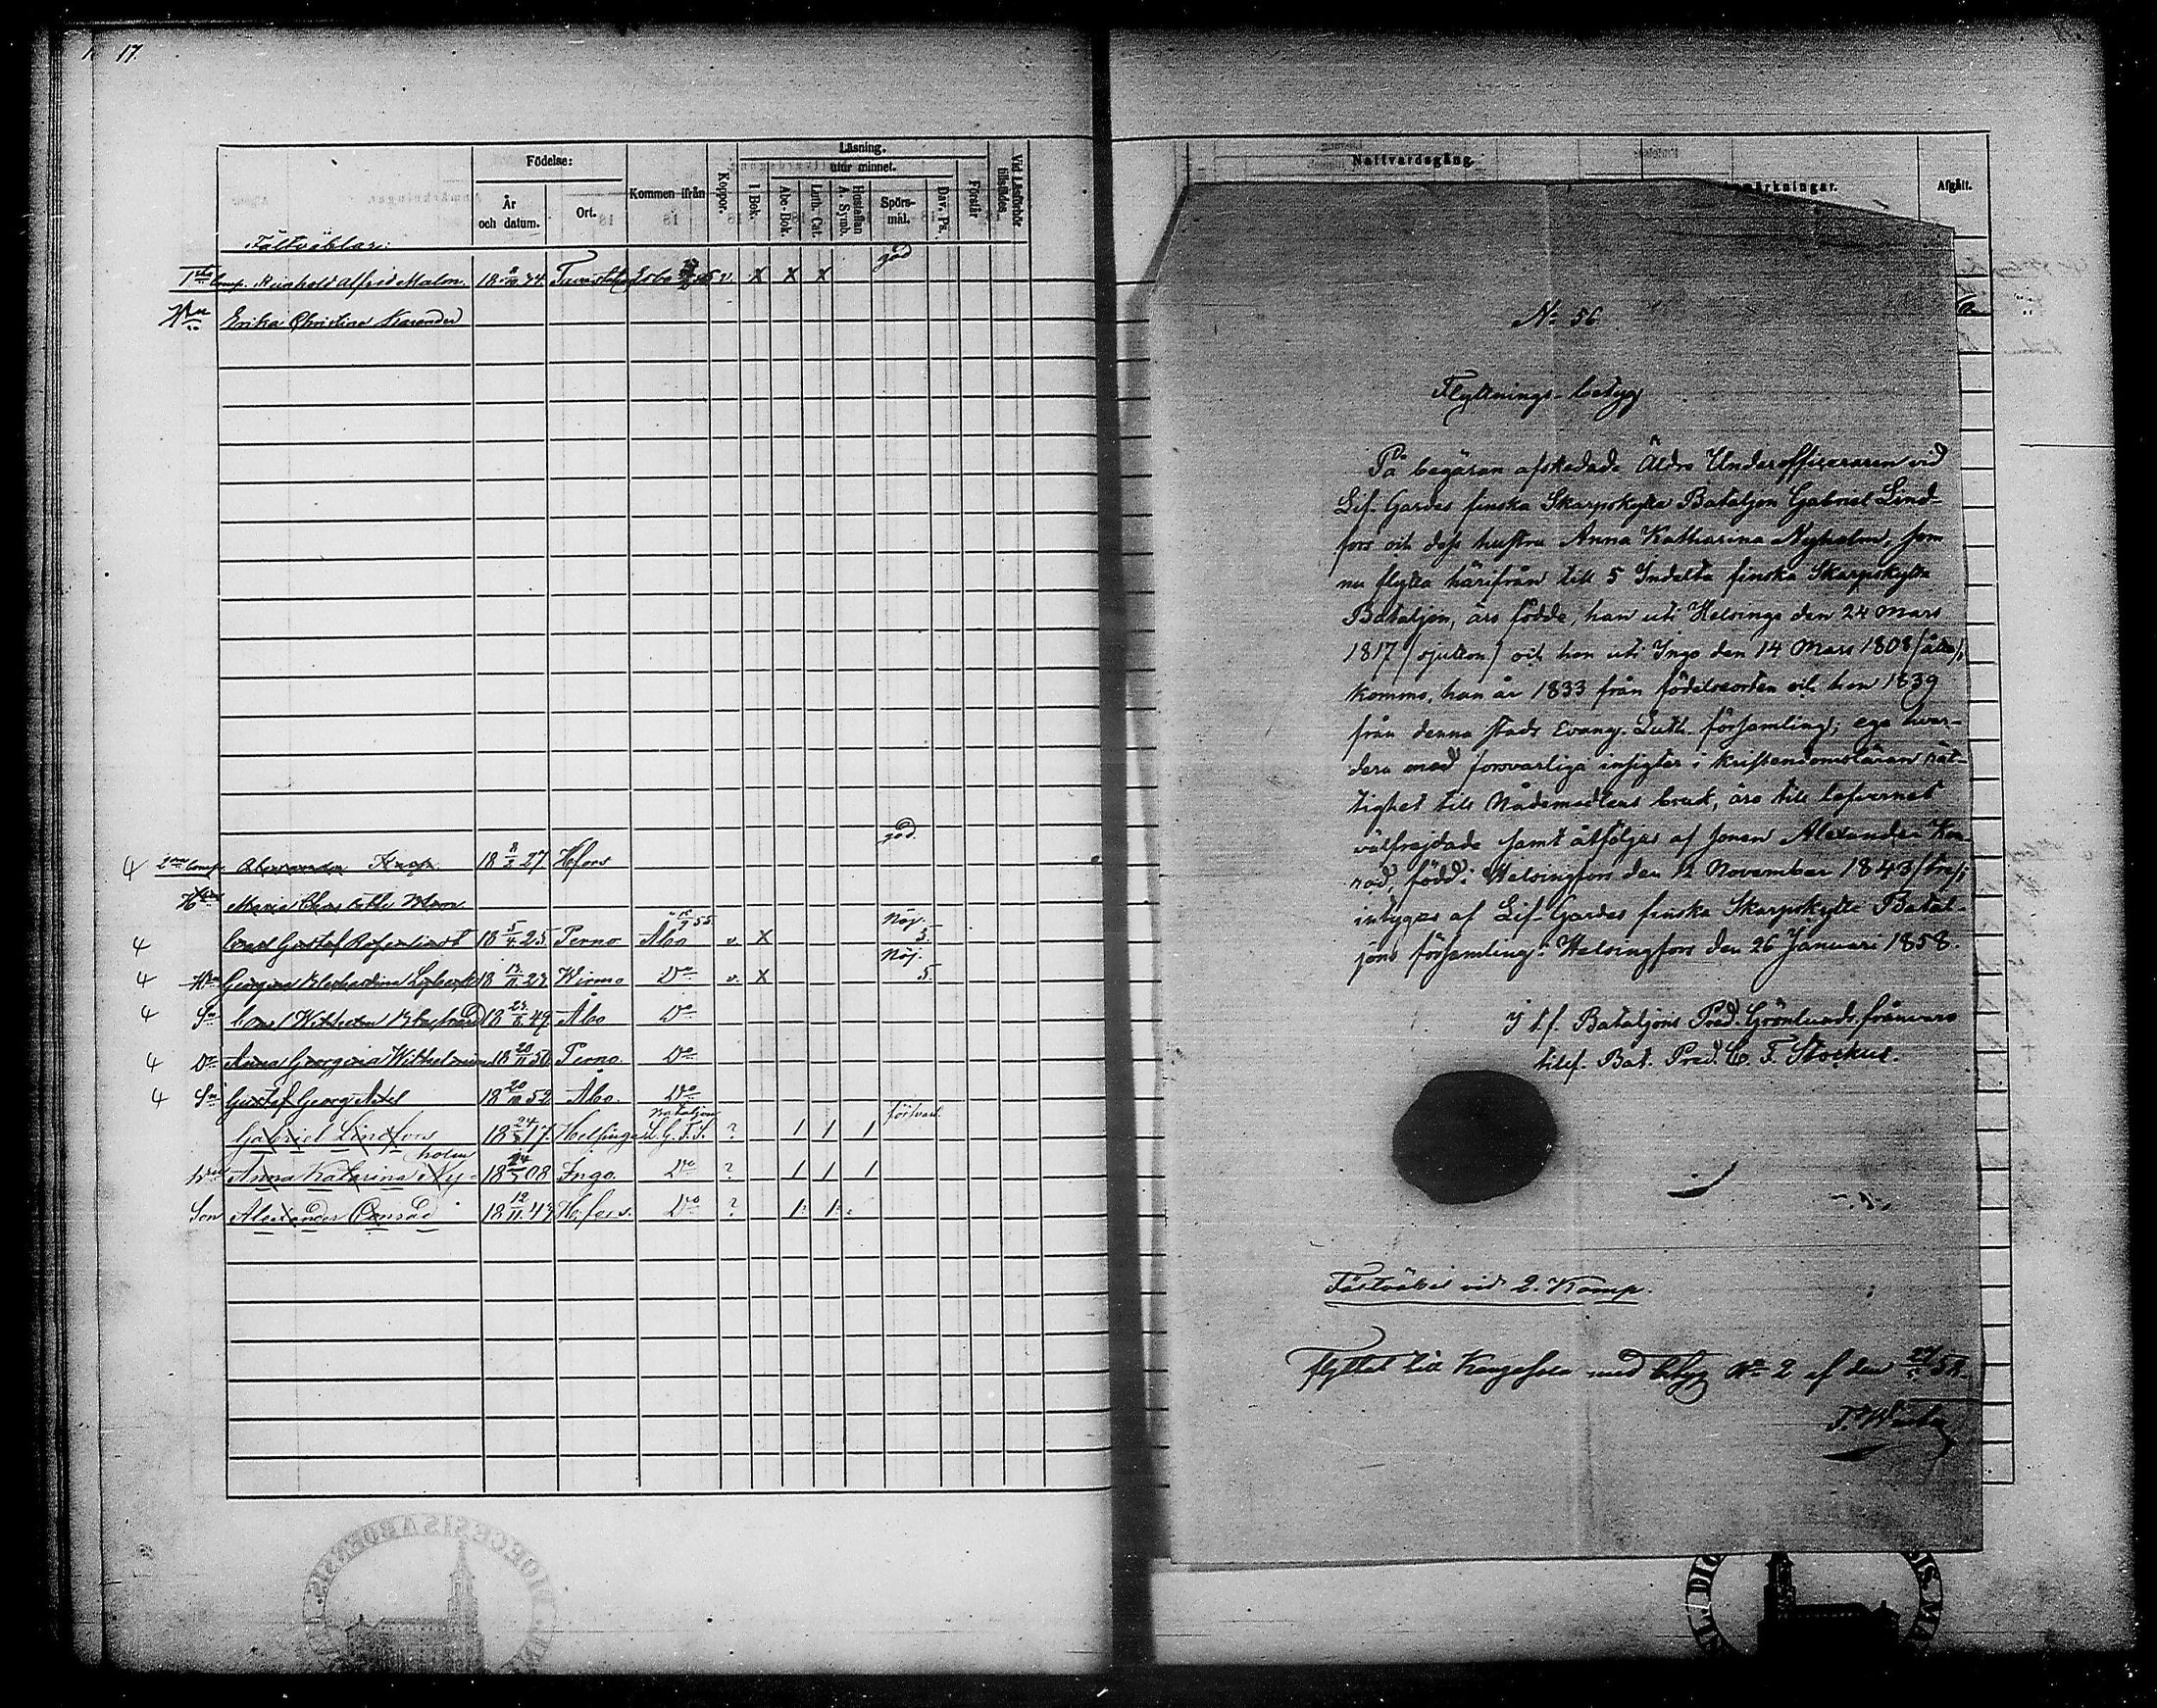 17.
Födelse:
Läsning.
utur minnet.
År
och datum.
Ort.
Kommen ifrån
Koppor.
I Bok.
Abc-Bok.
Luth. Cat.
Hustaflan
A. Symb.
Spörs-
mål.
Dav. Ps.
Förstår
Vid Läsförhör
tillstädes.
Fältväblar:
god
1sta Comp. Reinhold Alfred Malm. 18 34. Esbo v. X X X
Hru Erika Christina
god.
4 2dra Comp. Alexander 18 8/2 27. Hfors
Hru Maria Charlotta
4 Gustaf 18 5/4 25. Perno Åbo 55 v. X Nöj. 5.
4 Hru Georgina 18 23 Wirmo Do v. X Nöj. 5
4 Sn Carl Wilhelm 18 49. Åbo Do
4 Dr Anna Georgina Wilhelmina 18 20/11 50 Perno. Do
4 Sn Gustaf Georg Axel 18 20/10 52 Åbo. Do
Gabriel Lindfors 18 24/3 17. Helsinge Bataljon L. G. F. S. ? 1 1 1 försvarl.
Hru Anna Katarina Ny-holm 18 14/3 08 Ingo. Do ? 1 1 1
Son Alexander Conrad 18 12/11 43 H:fors. Do ? 1 1
Nattvardsgång.
Afgått.
No 56
Flyttnings-betyg
På begäran afskedade Äldre Underofficeraren vid
Lif-Gardes finska Skarpskytte Bataljon Gabriel Lind-
fors och dess hustru Anna Katharina Nyholm, som
nu flytta härifrån till 5 Indelta finska Skarpskytte
Bataljon, äro födde, han uti Helsinge den 24 Mars
1817 (sjutton) och hon uti Ingo den 14 Mars 1808 (åtta);
komne, han år 1833 från födelseorten och hon 1839
från denna stads Evang. Luth. församling; ega hvar-
dera med försvarliga insigter i kristendomsläran rät-
tighet till Nådemedlens bruk, äro till lefvernet
välfrejdade samt åtföljas af sonen Alexander Kon-
rad, född i Helsingfors den 12 November 1843 (tre);
intygas af Lif-Gardes finska Skarpskytte Batal-
jons församling: Helsingfors den 26 Januari 1858.
I t. f. Bataljons Pred. Grönlunds frånvaro
tillf. Bat. Pred. C. F. Stockus.
Fältväbel vid 2. Komp.
flyttat till med betyg No 2 af den 58.
DIOECESIS ABOENSIS